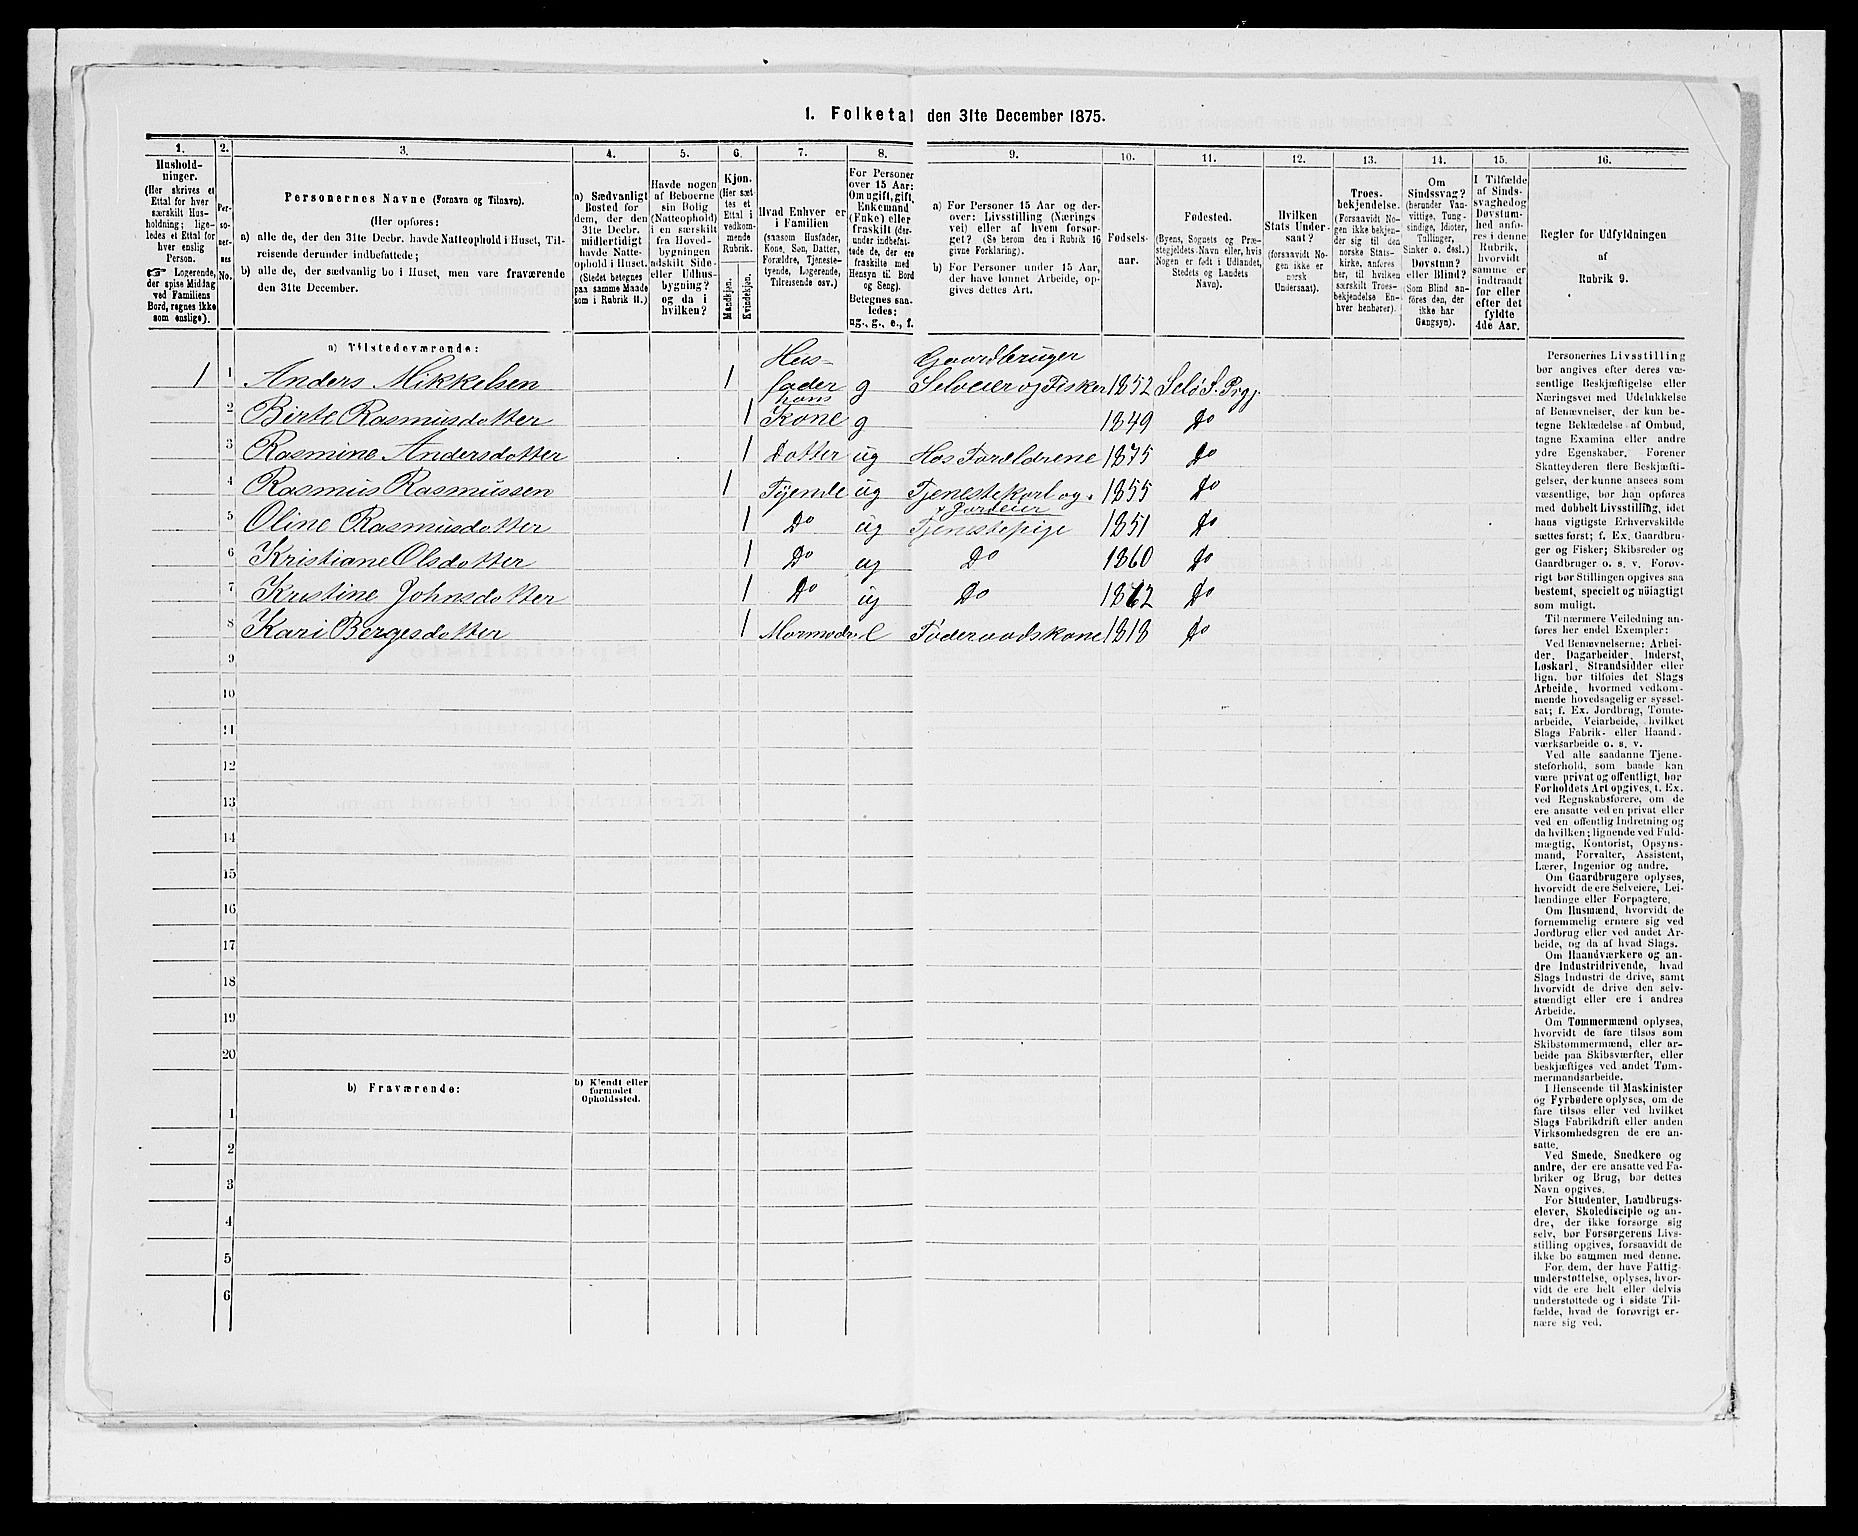 1. Folketal den 31te December 1875.
1.
2.
3.
4.
5.
6.
7.
8.
9.
10.
11.
12.
13.
14.
15.
16.
Hushold-
ninger.
(Her skrives et
Ettal for hver
særskilt Hus-
holdning; lige-
ledes et Ettal for
hver enslig
Person.
☞ Logerende,
der spise Middag
ved Familiens
Bord, regnes ikke
som enslige).
Per-
so-
ner-
nes
No.
Personernes Navne (Fornavn og Tilnavn).
(Her opføres:
a) alle de, der den 31te Decbr. havde Natteophold i Huset, Til-
reisende derunder indbefattede;
b) alle de, der sædvanlig bo i Huset, men vare fraværende
den 31te December.
a) Sædvanligt
Bosted for
dem, der den
31te Decbr.
midlertidigt
havde Natte-
ophold i Huset
(Stedet betegnes
paa samme Maade
som i Rubrik 11.)
Havde nogen
af Beboerne
sin Bolig
(Natteophold)
i en særskilt
fra Hoved-
bygningen
adskilt Side-
eller Udhus-
bygning?
og da i
hvilken?
Kjøn.
(Her sæt-
tes et
Ettal i
vedkom-
mende
Rubrik.
Mandkjøn.
Kvindekjøn.
Hvad Enhver er
i Familien
(saasom Husfader,
Kone, Søn, Datter,
Forældre, Tjeneste-
tyende, Logerende,
Tilreisende osv.)
For Personer
over 15 Aar:
Om ugift, gift,
Enkemand
(Enke) eller
fraskilt (der-
under indbefat-
tede de, der ere
fraskilte med
Hensyn til Bord
og Seng).
Betegnes saa-
ledes:
ug., g., e., f.
a) For Personer 15 Aar og der-
over: Livsstilling (Nærings
vei) eller af hvem forsør-
get? (Se herom den i Rubrik 16
givne Forklaring).
b) For Personer under 15 Aar,
der have lønnet Arbeide, op-
gives dettes Art.
Fødsels-
aar.
Fødested.
(Byens, Sognets og Præ-
stegjeldets Navn eller, hvis
Nogen er født i Udlandet,
Stedets og Landets
Navn).
Hvilken
Stats Under-
saat?
(forsaavidt No-
gen ikke er
norsk
Undersaat).
Troes-
bekjendelse.
(Forsaavidt No-
gen ikke bekjen-
der sig til den
norske Stats-
kirke, anføres
her, til hvilken
særskilt Troes-
bekjendelse En-
hver henhører).
Om
Sindssvag?
(herunder Van-
vittige, Tung-
sindige, Idioter,
Tullinger,
Sinker o. desl.)
Døvstum?
eller Blind?
(Som Blind an-
føres den, der
ikke har
Gangsyn).
I Tilfælde
af Sinds-
svaghed og
Døvstum-
hed anfø-
res i denne
Rubrik,
hvorvidt
samme er
indtraadt
før eller
efter det
fyldte
4de Aar.
Regler for Udfyldningen
af
Rubrik 9.
a) Tilstedeværende:
1 1 Anders Mikkelsen 1 Hus-
fader g Gaardbruger
Selveier og Fisker 1852 Selø S. Prgj.
2 Birte Rasmusdotter 1 hans
Kone g 1849 Do
3 Rasmine Andersdotter 1 Dotter ug Hos Forældrene 1875 Do
4 Rasmus Rasmussen 1 Tyende ug Tjenestekarl og
Jordeier 1855 Do
5 Oline Rasmusdotter 1 Do ug Tjenestepige 1851 Do
6 Kristiane Olsdotter 1 Do ug Do 1860 Do
7 Kristine Johnsdotter 1 Do ug Do Do
8 Kari Bergesdotter 1 Mormoder e Føderaadskone 1818 Do
9
10
11
12
13
14
15
16
17
18
19
20
b) Fraværende:
b) Kjendt eller
formodet
Opholdssted.
1
2
3
4
5
6
Personernes Livsstilling
bør angives efter deres væ-
sentlige Beskjæftigelse eller
Næringsvei med Udelukkelse
af Benævnelser, der kun be-
tegne Beklædelse af Ombud,
tagne Examina eller andre
ydre Egenskaber. Forener
Skatteyderen flere Beskjæfti-
gelser, der kunne ansees som
væsentlige, bør han opføres
med dobbelt Livsstilling, idet
hans vigtigste Erhvervskilde
sættes først; f. Ex. Gaardbru-
ger og Fisker; Skibsreder og
Gaardbruger o. s. v. Forøv-
rigt bør Stillingen opgives saa
bestemt, specielt og nøiagtigt
som muligt.
Til nærmere Veiledning an-
føres her endel Exempler:
Ved Benævnelserne: Arbei-
der, Dagarbeider, Inderst,
Løskarl, Strandsidder eller
lign. bør tilføies det Slags
Arbeide, hvormed vedkom-
mende hovedsagelig er syssel-
sat; f. Ex. Jordbrug, Tomte-
arbeide, Veiarbeide, hvilket
Slags Fabrik- eller Haand-
værksarbeide o. s. v.
Ved alle saadanne Tjene-
steforhold, som baade kan
være privat og offentligt, bør
Forholdets Art opgives, t. Ex.
ved Regnskabsførere, om de
ere ansatte ved en privat eller
ved en offentlig Indretning og
da hvilken; lignende ved Fuld-
mægtig, Kontorist, Opsyns-
mand, Forvalter, Assistent,
Lærer, Ingeniør og andre.
Om Gaardbrugere oplyses,
hvorvidt de ere Selveiere, Lei-
lændinge eller Forpagtere.
Om Husmænd, hvorvidt de
fornemmelig ernære sig ved
Jordbrug eller ved andet Ar-
beide, og da af hvad Slags.
Om Haandværkere og an-
dre Industridrivende, hvad
Slags Industri de drive, samt
hvorvidt de drive den selv-
stændigt eller ere i andres
Arbeide.
Om Tømmermænd oplyses,
hvorvidt de fare tilsøs som
Skibstømmermænd, eller ar-
beide paa Skibsværfter, eller
beskjæftiges ved andet Tøm-
mermandsarbeide.
I Henseende til Maskinister
og Fyrbødere oplyses, om de
fare tilsøs eller ved hvilket
Slags Fabrikdrift eller anden
Virksomhedsgren de ere an-
satte.
Ved Smede, Snedkere og
andre, der ere ansatte ved Fa-
briker og Brug, bør dettes
Navn opgives.
For Studenter, Landbrugs-
elever, Skoledisciple og an-
dre, der ikke forsørge sig
selv, bør Forsørgerens Livs-
stilling opgives, forsaavidt de
ikke bo sammen med denne.
For dem, der have Fattig-
understøttelse, oplyses, hvor-
vidt de ere helt eller delvis
understøttede og i sidste Til-
fælde, hvad de forøvrigt er-
nære sig ved.